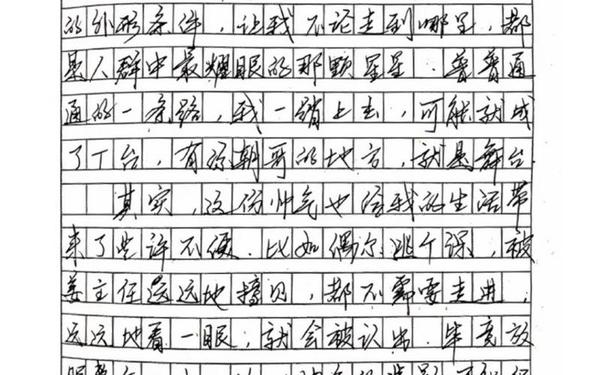 的外形条件，让我不论走到哪里，都
是人群中最耀眼的那颗星星．普普通
通的一条路，我一踏上去，可能就成
了T台，有 朝哥的地方，就是舞台．
其实，这份帅气也给我的生活带
来了些许不便．比如偶尔逃个课，被
姜主任远远地撞见，都不需要走进，
远远地看一眼，就会被认出．毕竟放